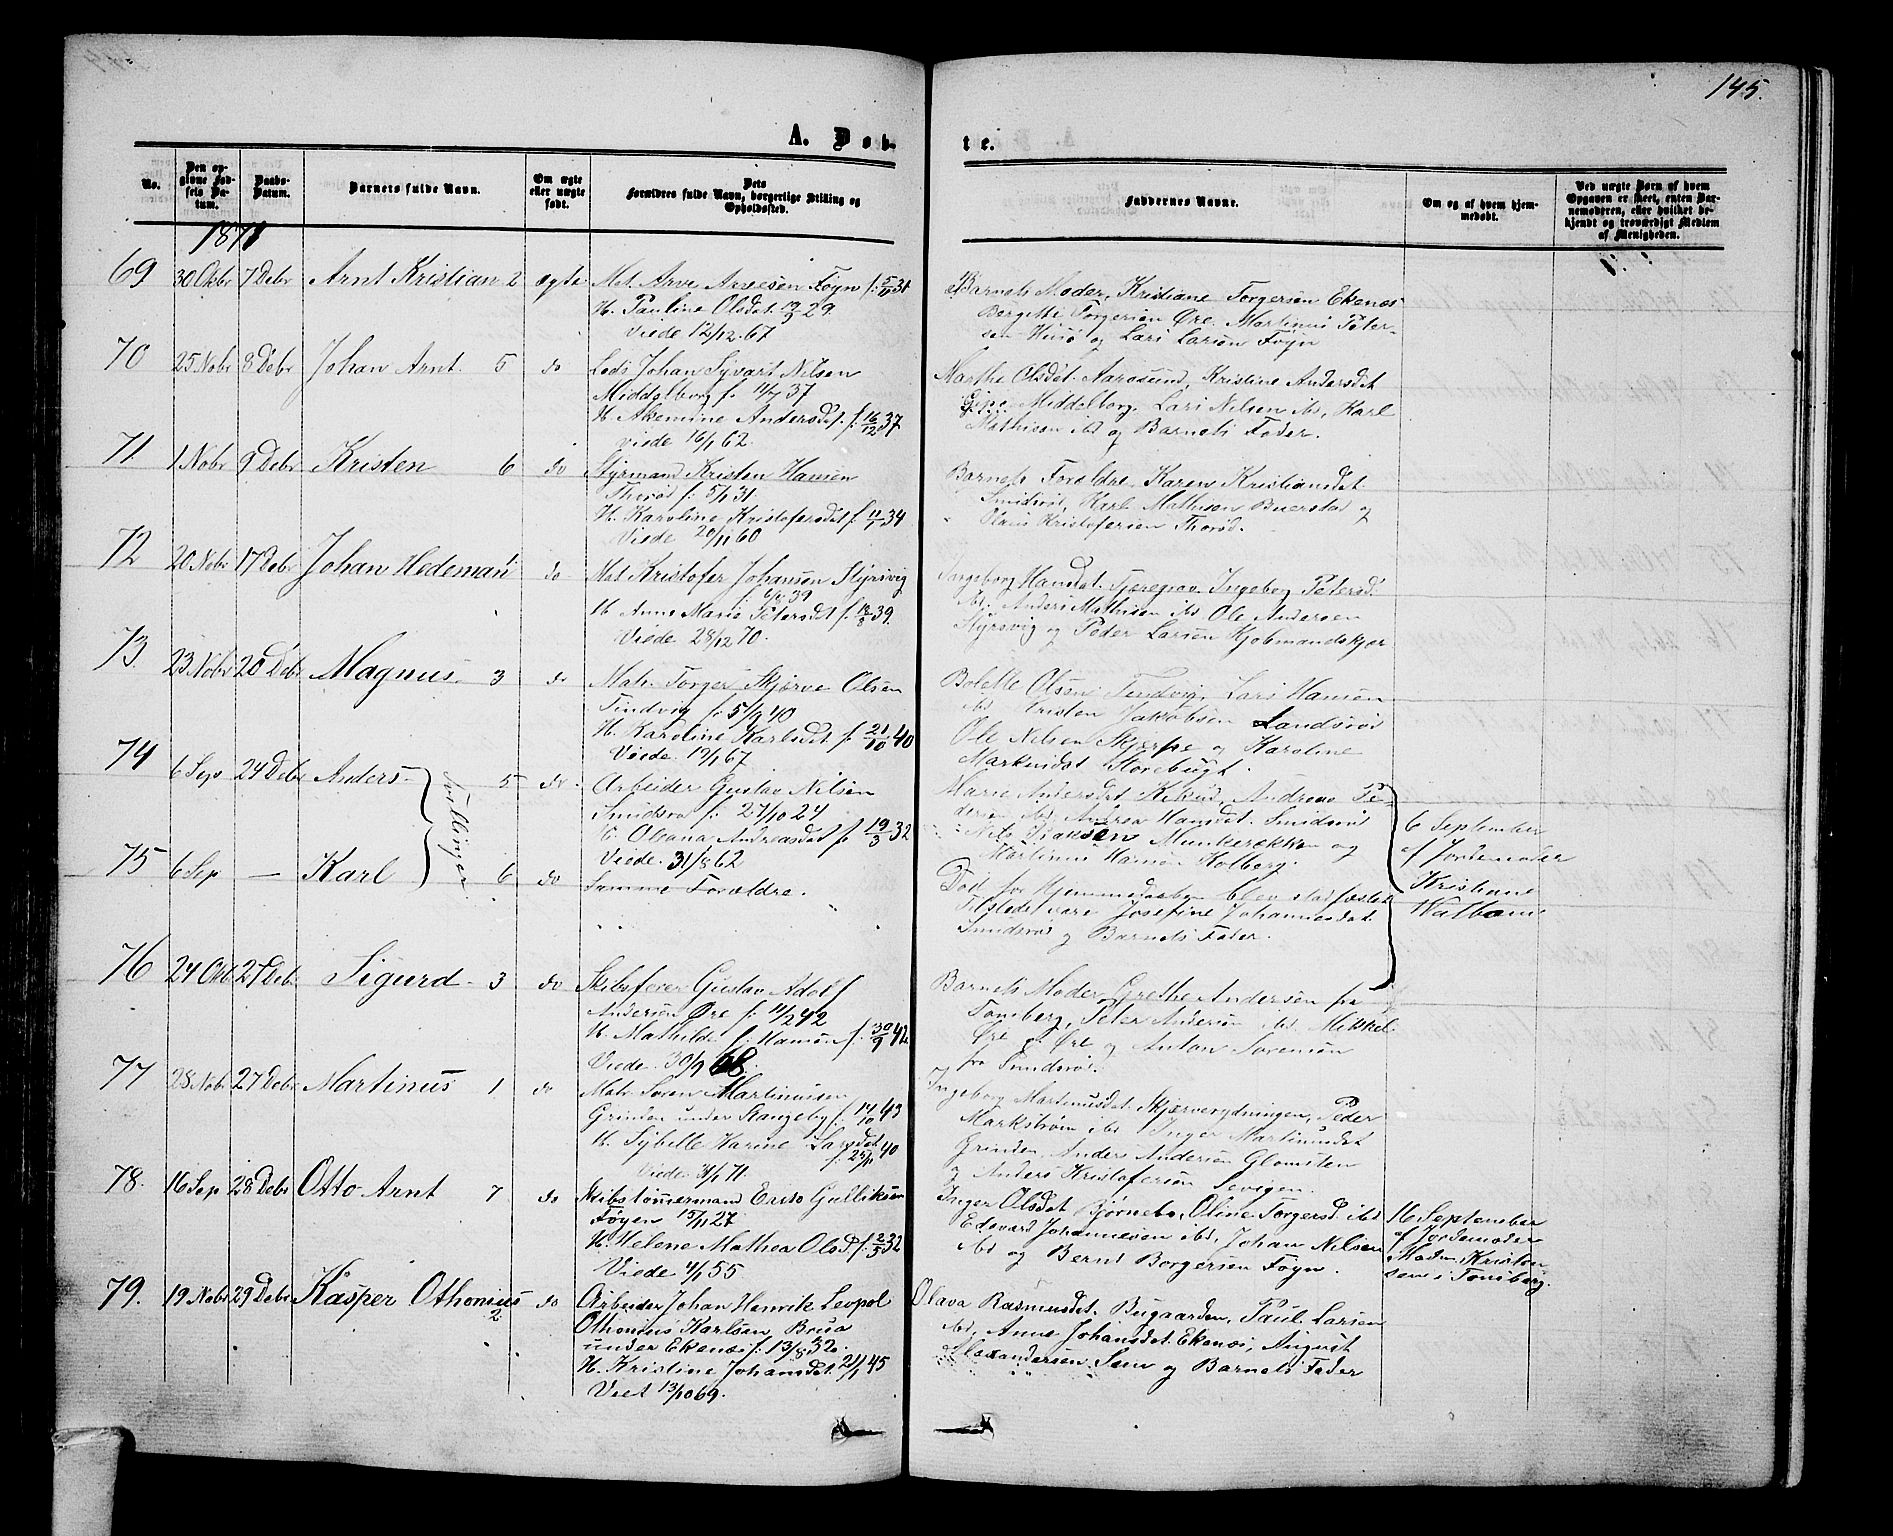 145.
A. Døb-
te.
No.
Den opgivne Fødsels Datum.
Daabs-Datum.
Barnets fulde Navn.
Om ægte eller uægte født.
Dets Forældres fulde Navn, borgerlige Stilling og Opholdssted.
Faddernes Navne.
Om og af hvem hjemmedøbt.
Ved uægte Børn af hvem Opgaven er skeet, enten Barnemoderen, eller hvilket bekjendt og troværdigt Medlem af Menigheden.
1871
69 30 Okbr 7 Debr Arnt Kristian 2 ægte
Mat. Arve Arvesen Føyn f.
H. Pauline Olsdet 29.
Viede 12/12 67
Barnets Moder, Kristiane Torgersen Ekenæs
Bergitte Torgersen Øre, Martinus Peter-
sen Husø og Lars Larsen Føyn
70 25 Nobr 8 Debr Johan Arnt. 5 do
Lods Johan Syvart Nilsen
Middelborg f. 37
H. Akemine Andersdt. f. 16/12 37
viede 16/1 62.
Marthe Olsdet. Aarosund, Kristine Andersdet
Gipø Middelborg, Lars Nilsen ibs, Karl
Mathisen ibs og Barnets Fader.
71 1 Nobr 9 Debr Kristen 6 do
Styrmand Kristen Hansen
Thorød f. 5/1 31.
H. Karoline Kristofersdet f. 34
Viede 20/11 60
Barnets Forældre, Karen Kristiansdet.
Smidsrød, Karl Mathisen Buerstad og
Olaus Kristofersen Thorød.
72 20 Nobr 17 Debr Johan Hedeman do
Mat. Kristofer Johansen Styrsvig
f. 6/8 39
H. Anne Marie Petersdt f. 39.
Viede 28/12 70.
Ingeborg Hansdet. Tjæregrav, Ingeborg Petersd.
ibs. Anders Mathisen ibs Ole Andersen
Styrsvig og Peder Larsen Kjøbmandskjær
73. 23. Nobr 20 Debr Magnus. 3 do
Matr. Torger Skjerve Olsen
Tindvig f. 5/9 40
H. Karoline Karlsdet f. 21/10 40
Viede 19/1 67
Bolette Olsen Tindvig, Lars Hansen
ibs Kristen Jakobsen Sandsrød
Ole Nilsen Skjerpe og Karoline
Markusdet Storebugt.
74 6 Sep 24 Debr Anders 5 do.
Tvillinger
Arbeider Gustav Nilsen
Smidsrød f. 27/10 24
H. Oleana Andreasdet f. 19/3 32
Viede 31/8 62
Marie Andersdet Kikud, Andreas Pe-
dersen ibs, Andrea Hansdet. Smidsrød
Nils Isaksen Munkerekken og
Martinus Hansen Kolberg.
6 September
af Jordemoder
Kristiane
75 6 Sep — Karl 6 do
Samme Forældre.
Død før Hjemmedaaben blev stadfæstet
Tilstede vare Josefine Johannesdet
Smidsrød og Barnets Fader.
76 24 Okb 27 Debr Sigurd 3 do
Skibsfører Gustav Adolf
Andersen Øre f. 11/2 42
H. Mathilde f. Hansen f. 30/9 42
Viede. 30/9 68.
Barnets Moder, Grethe Andersen fra
Tønsberg, Peter Andersen ibs, Mikkel
Øre og Anton Sørensen
fra Smidsrød.
77 28 Nobr 27 Debr Martinus 1 do
Matr. Søren Martinusen
Grinden under Stangeby f. 43
H. Sybille Karine Larsdet
f. 40
Viede 71.
Ingeborg Martinusdet. Skjærverydningen, Peder
Markstrøm ibs Inger Martinusdet
Grinden, Anders Andersen Glomsten
og Anders Kristofersen Sevigen.
78. 16 Sep 28 Debr Otto Arnt 7 do
Skibstømmermand Enste Gulliksen
Føyen 15/11 27
H. Helene Mathea Olsd f. 2/5 32
Viede 4/1 55
Inger Olsdet Bjørnebo, Oline Torgersd. ibs
Edevard Johannesen ibs, Johan Nilsen
ibs og Bernt Borgersen Føyn.
16 September
af Jordemoder
Madm Kristen-
sen i Tønsberg.
79. 19 Nobr 29 Debr Kasper Othonius 2 do
Arbeider Johan Henrik Leopol
Othonius Karlsen, Brua
under Ekenæs f. 13/8 32.
H. Kristine Johansdet 21/1 45
Viet 13/10 69.
Olava Rasmusdet. Bugaarden, Paul Larsen
ibs, Anne Johansdet. Ekenæs, August
Alexandersen Sem og Barnets Fader